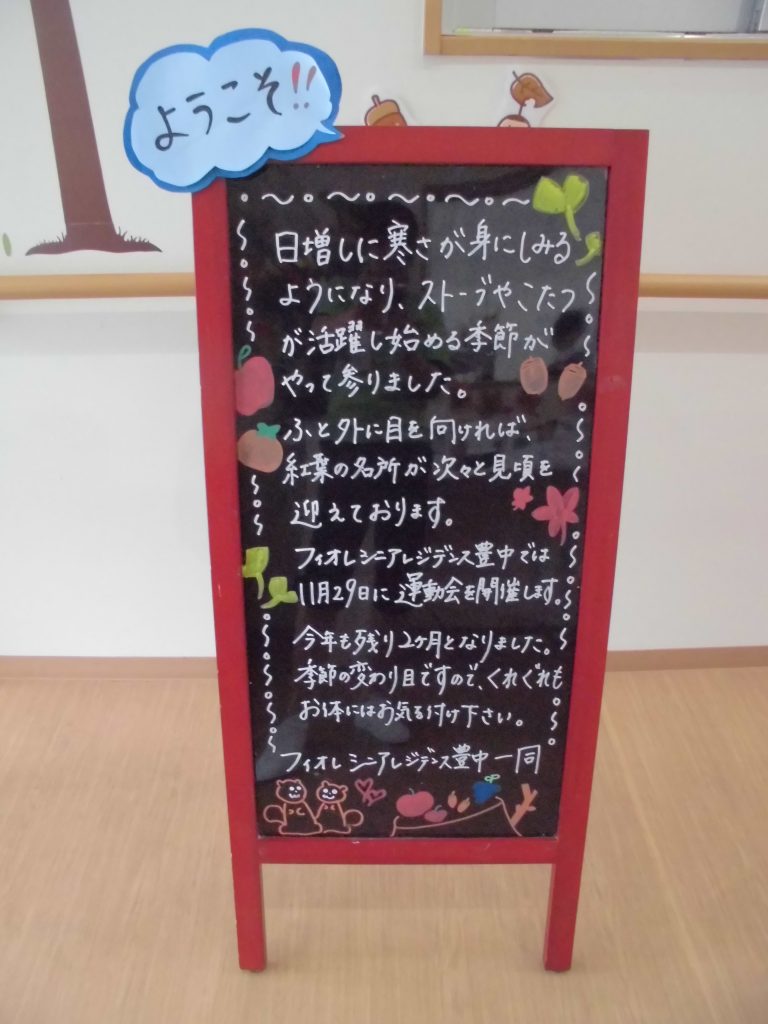 ようこそ!!
日増しに寒さが身にしみる
ようになり、ストーブやこたつ
が活躍し始める季節が
やって参りました。
ふと外に目を向ければ、
紅葉の名所が次々と見頃を
迎えております。
フィオレシニアレジデンス豊中では
11月29日に運動会を開催します。
今年も残り2ヶ月となりました。
季節の変わり目ですので、くれぐれも
お体にはお気を付け下さい。
フィオレシニアレジデンス豊中一同